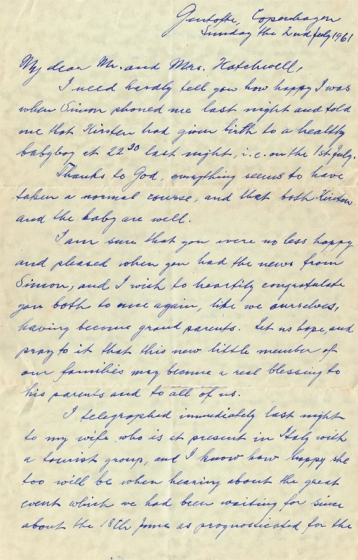 Gentofte, Copenhagen
Sunday the 2nd July 1961
My dear Mr. and Mrs. Hatchwell,
I need hardly tell you how happy I was
when Simon phoned me last night and told
me that Kirsten had given birth to a healthy
babyboy at 22³⁰ last night, i.e. on the 1st July.
Thanks to God, everything seems to have
taken a normal course, and that both Kirsten
and the baby are well.
I am sure that you were no less happy
and pleased when you had the news from
Simon, and I wish to heartily congratulate
you both to once again, like we ourselves,
having become grand parents. Let us hope and
pray to it that this new little member of
our families may become a real blessing to
his parents and to all of us.
I telegraphed immediately last night
to my wife who is at present in Italy with
a tourist group, and I know how happy she
too will be when hearing about the great
event which we had been waiting for since
about the 18th June as prognosticated for the